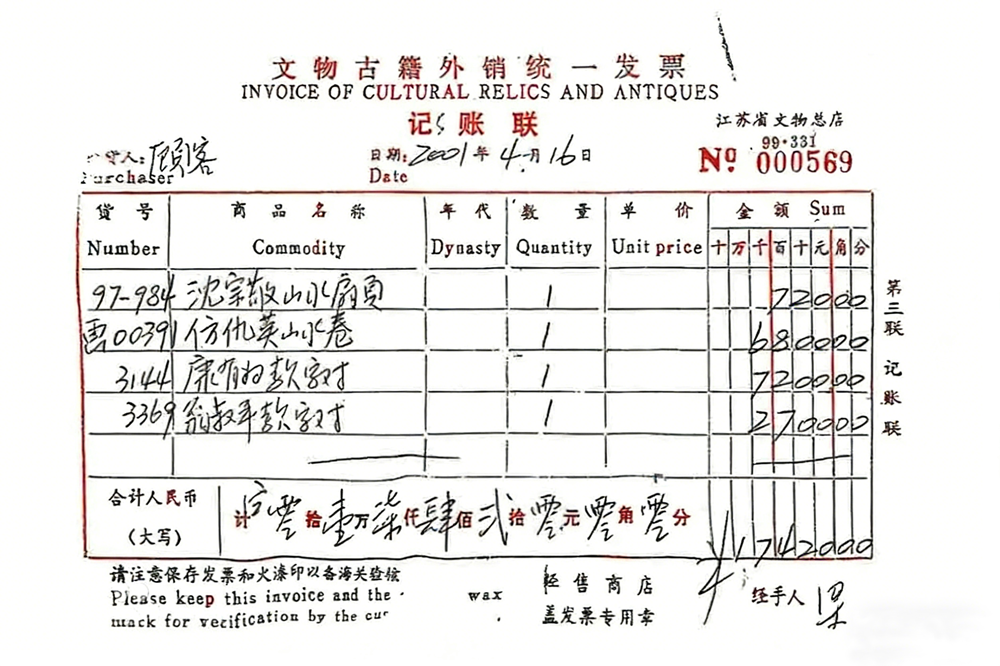 文物古籍外销统一发票
INVOICE OF CULTURAL RELICS AND ANTIQUES
记账联
江苏省文物总店
99·331
人:顾客 日期:2001年4月16日 Nº 000569
Purchaser Date
货号 商品名称 年代 数量 单价 金额 Sum
Number Commodity Dynasty Quantity Unit price 十万千百十元角分
97-984 沈宗敬山水扇页 1 72000
00391 仿仇英山水卷 1 680000
3144 康有为款字对 1 720000
3369 翁叔平款字对 1 270000
合计人民币 计 零拾壹万柒仟肆佰贰拾零元零角零分 ¥1742000
(大写)
第三联 记账联
请注意保存发票和火漆印以备海关查验 经售商店 经手人 梁
Please keep this invoice and the wax
mark for verification by the cus 盖发票专用章